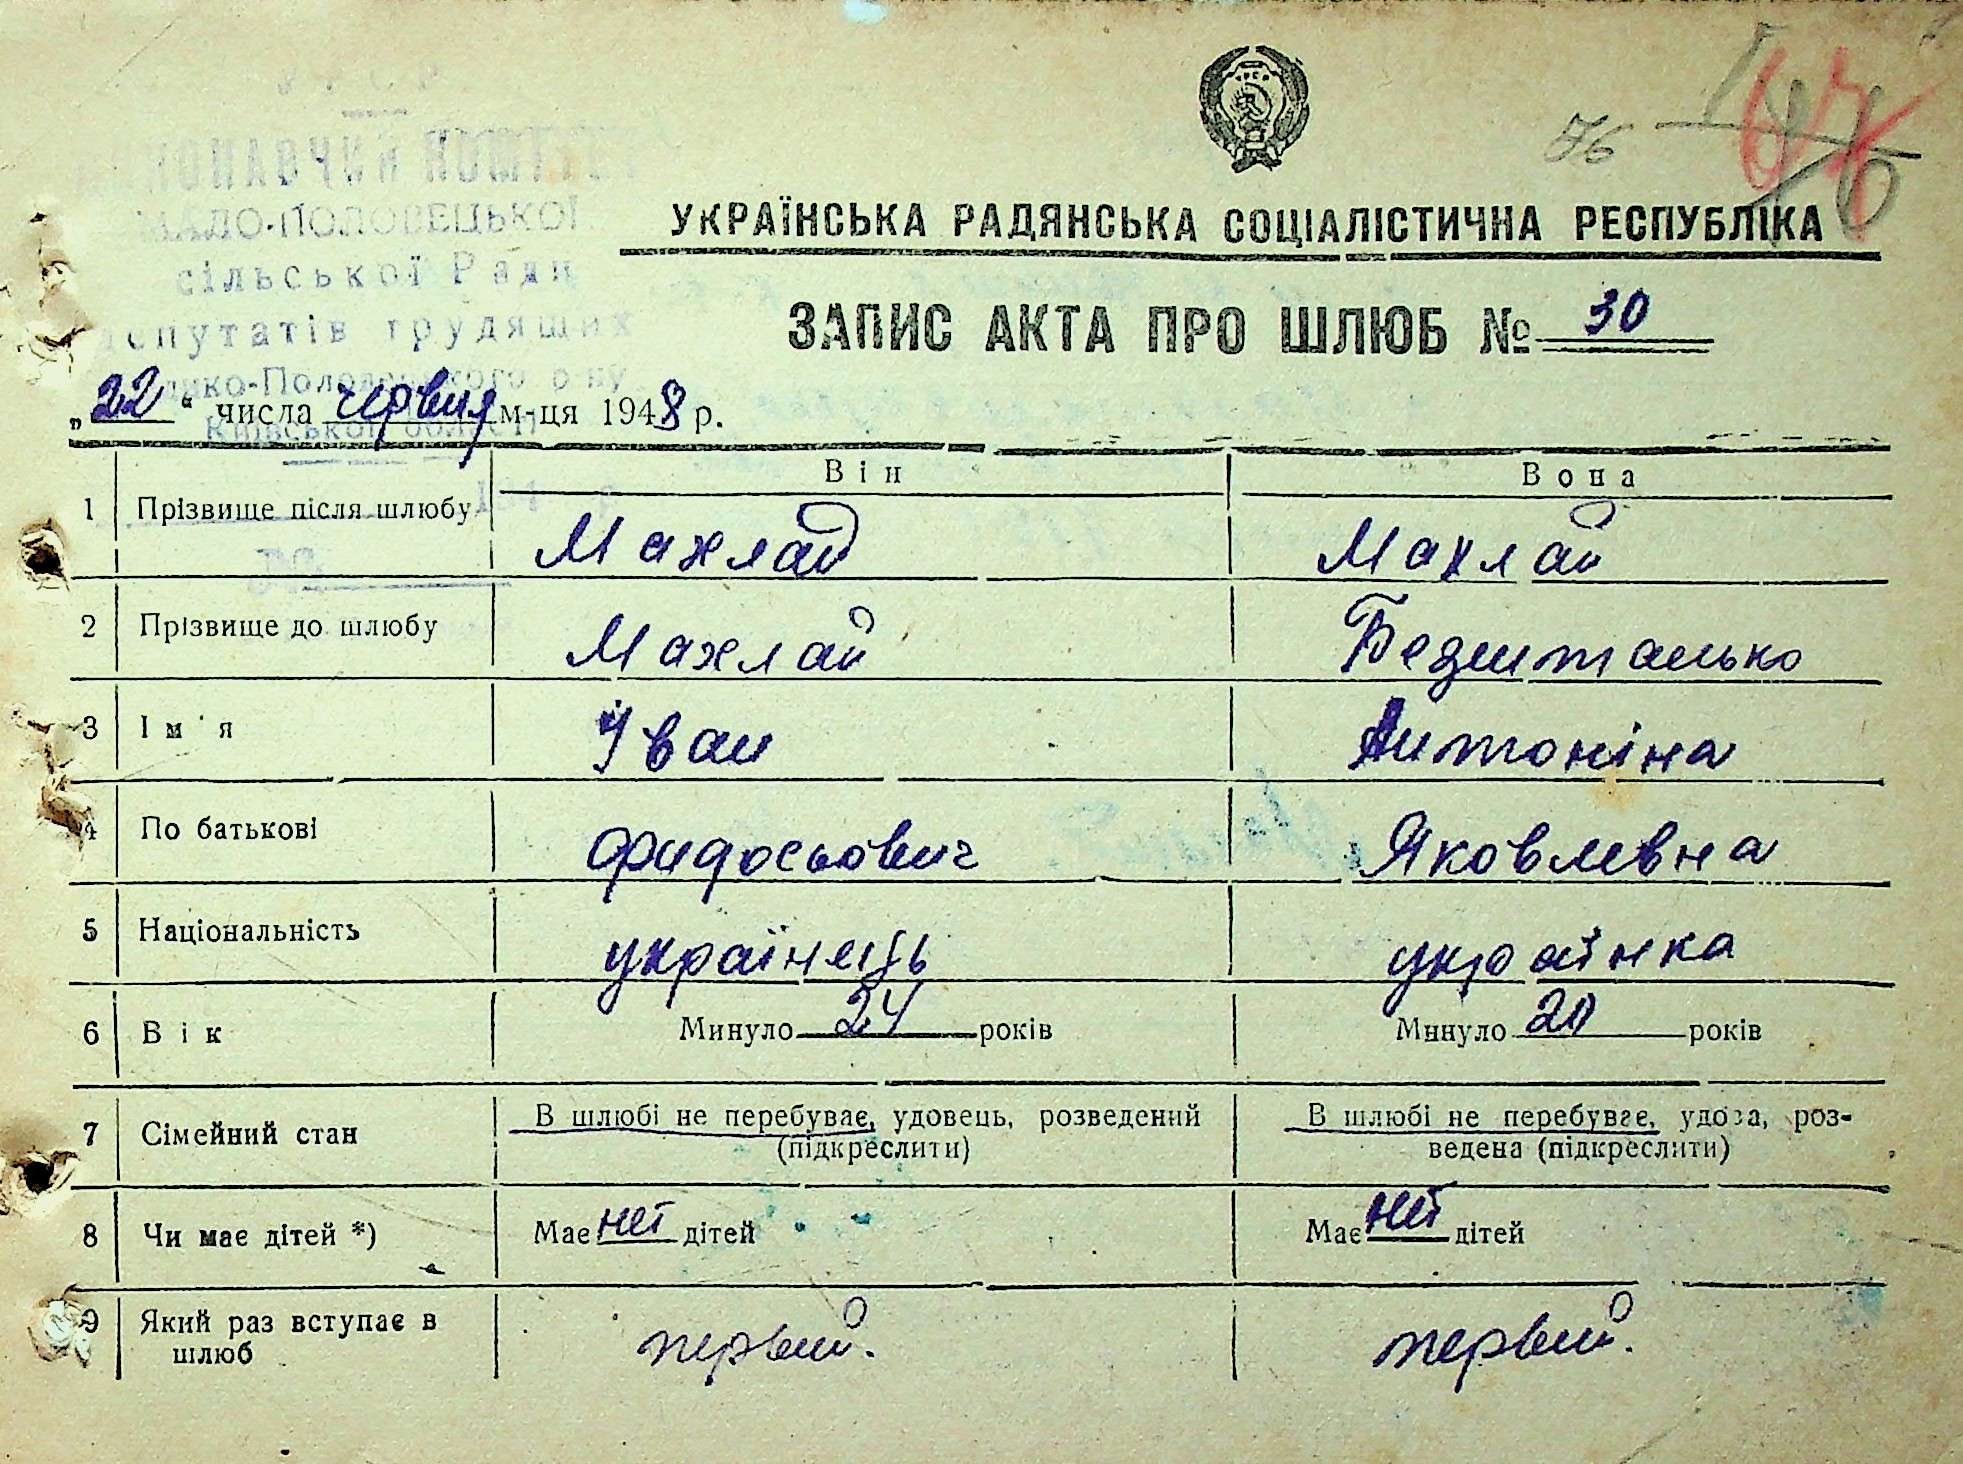 УРСР
ВИКОНАВЧИЙ КОМІТЕТ
МАЛО-ПОЛОВЕЦЬКОЇ
сільської Ради
депутатів трудящих
Київської області
76
67
УКРАЇНСЬКА РАДЯНСЬКА СОЦІАЛІСТИЧНА РЕСПУБЛІКА
ЗАПИС АКТА ПРО ШЛЮБ № 30
„22“ числа червня м-ця 1948 р.
Він Вона
1 Прізвище після шлюбу Махлай Махлай
2 Прізвище до шлюбу Махлай Безштанько
3 Ім'я Іван Антоніна
4 По батькові Фидосьович Яковлевна
5 Національність українець українка
6 Вік Минуло 24 років Минуло 20 років
7 Сімейний стан В шлюбі не перебуває, удовець, розведений В шлюбі не перебуває, удова, роз-
(підкреслити) ведена (підкреслити)
8 Чи має дітей *) Має нет дітей Має нет дітей
9 Який раз вступає в первий. первий.
шлюб